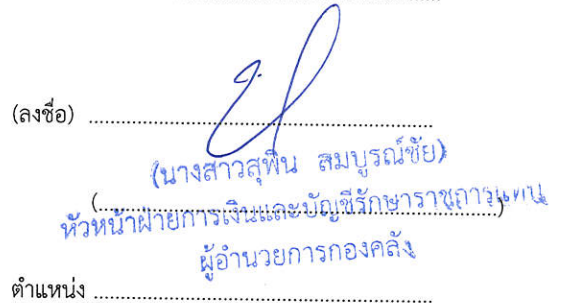 (ลงชื่อ) ........................................................
(นางสาวสุพิน สมบูรณ์ชัย)
(........................................................)
หัวหน้าฝ่ายการเงินและบัญชีรักษาราชการแทน
ผู้อำนวยการกองคลัง
ตำแหน่ง ........................................................